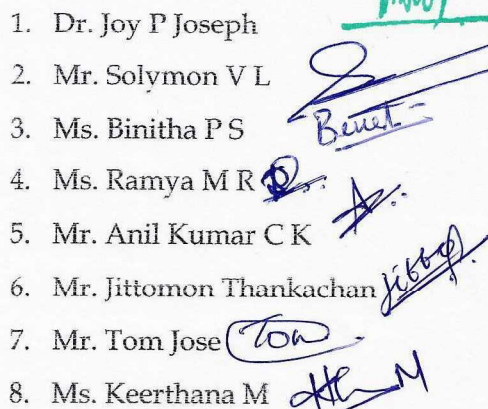 1. Dr. Joy P Joseph
2. Mr. Solymon V L
3. Ms. Binitha P S
4. Ms. Ramya M R
5. Mr. Anil Kumar C K
6. Mr. Jittomon Thankachan
7. Mr. Tom Jose Tom
8. Ms. Keerthana M